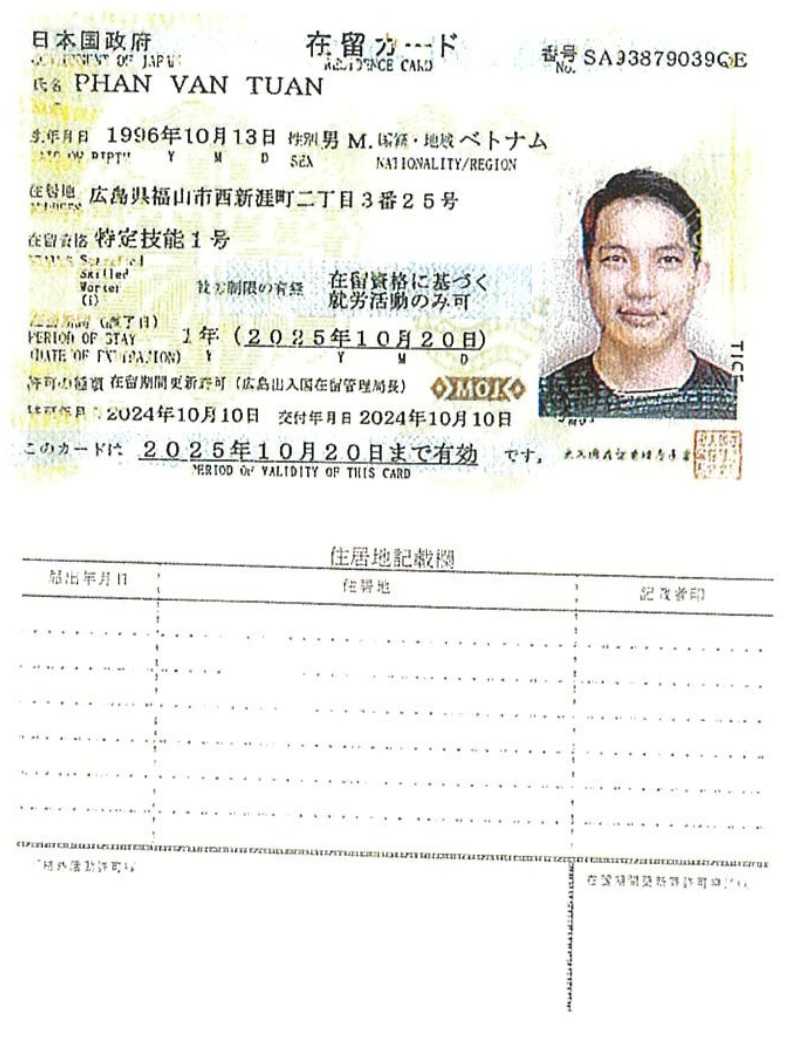 日本国政府 在留カード 番号 SA93879039QE
GOVERNMENT OF JAPAN RESIDENCE CARD No.
氏名 PHAN VAN TUAN
生年月日 1996年10月13日 性別 男 M. 国籍・地域 ベトナム
DATE OF BIRTH Y M D SEX NATIONALITY/REGION
住居地 広島県福山市西新涯町二丁目3番25号
在留資格 特定技能1号
STATUS Specified
Skilled
Worker
(i)
就労制限の有無 在留資格に基づく
就労活動のみ可
在留期間(満了日)
PERIOD OF STAY 1年 (2025年10月20日)
(DATE OF EXPIRATION) Y Y M D
許可の種類 在留期間更新許可 (広島出入国在留管理局長) MOJ
許可年月日 2024年10月10日 交付年月日 2024年10月10日
このカードは 2025年10月20日まで有効 です。
PERIOD OF VALIDITY OF THIS CARD
住居地記載欄
届出年月日 住居地 記載者印